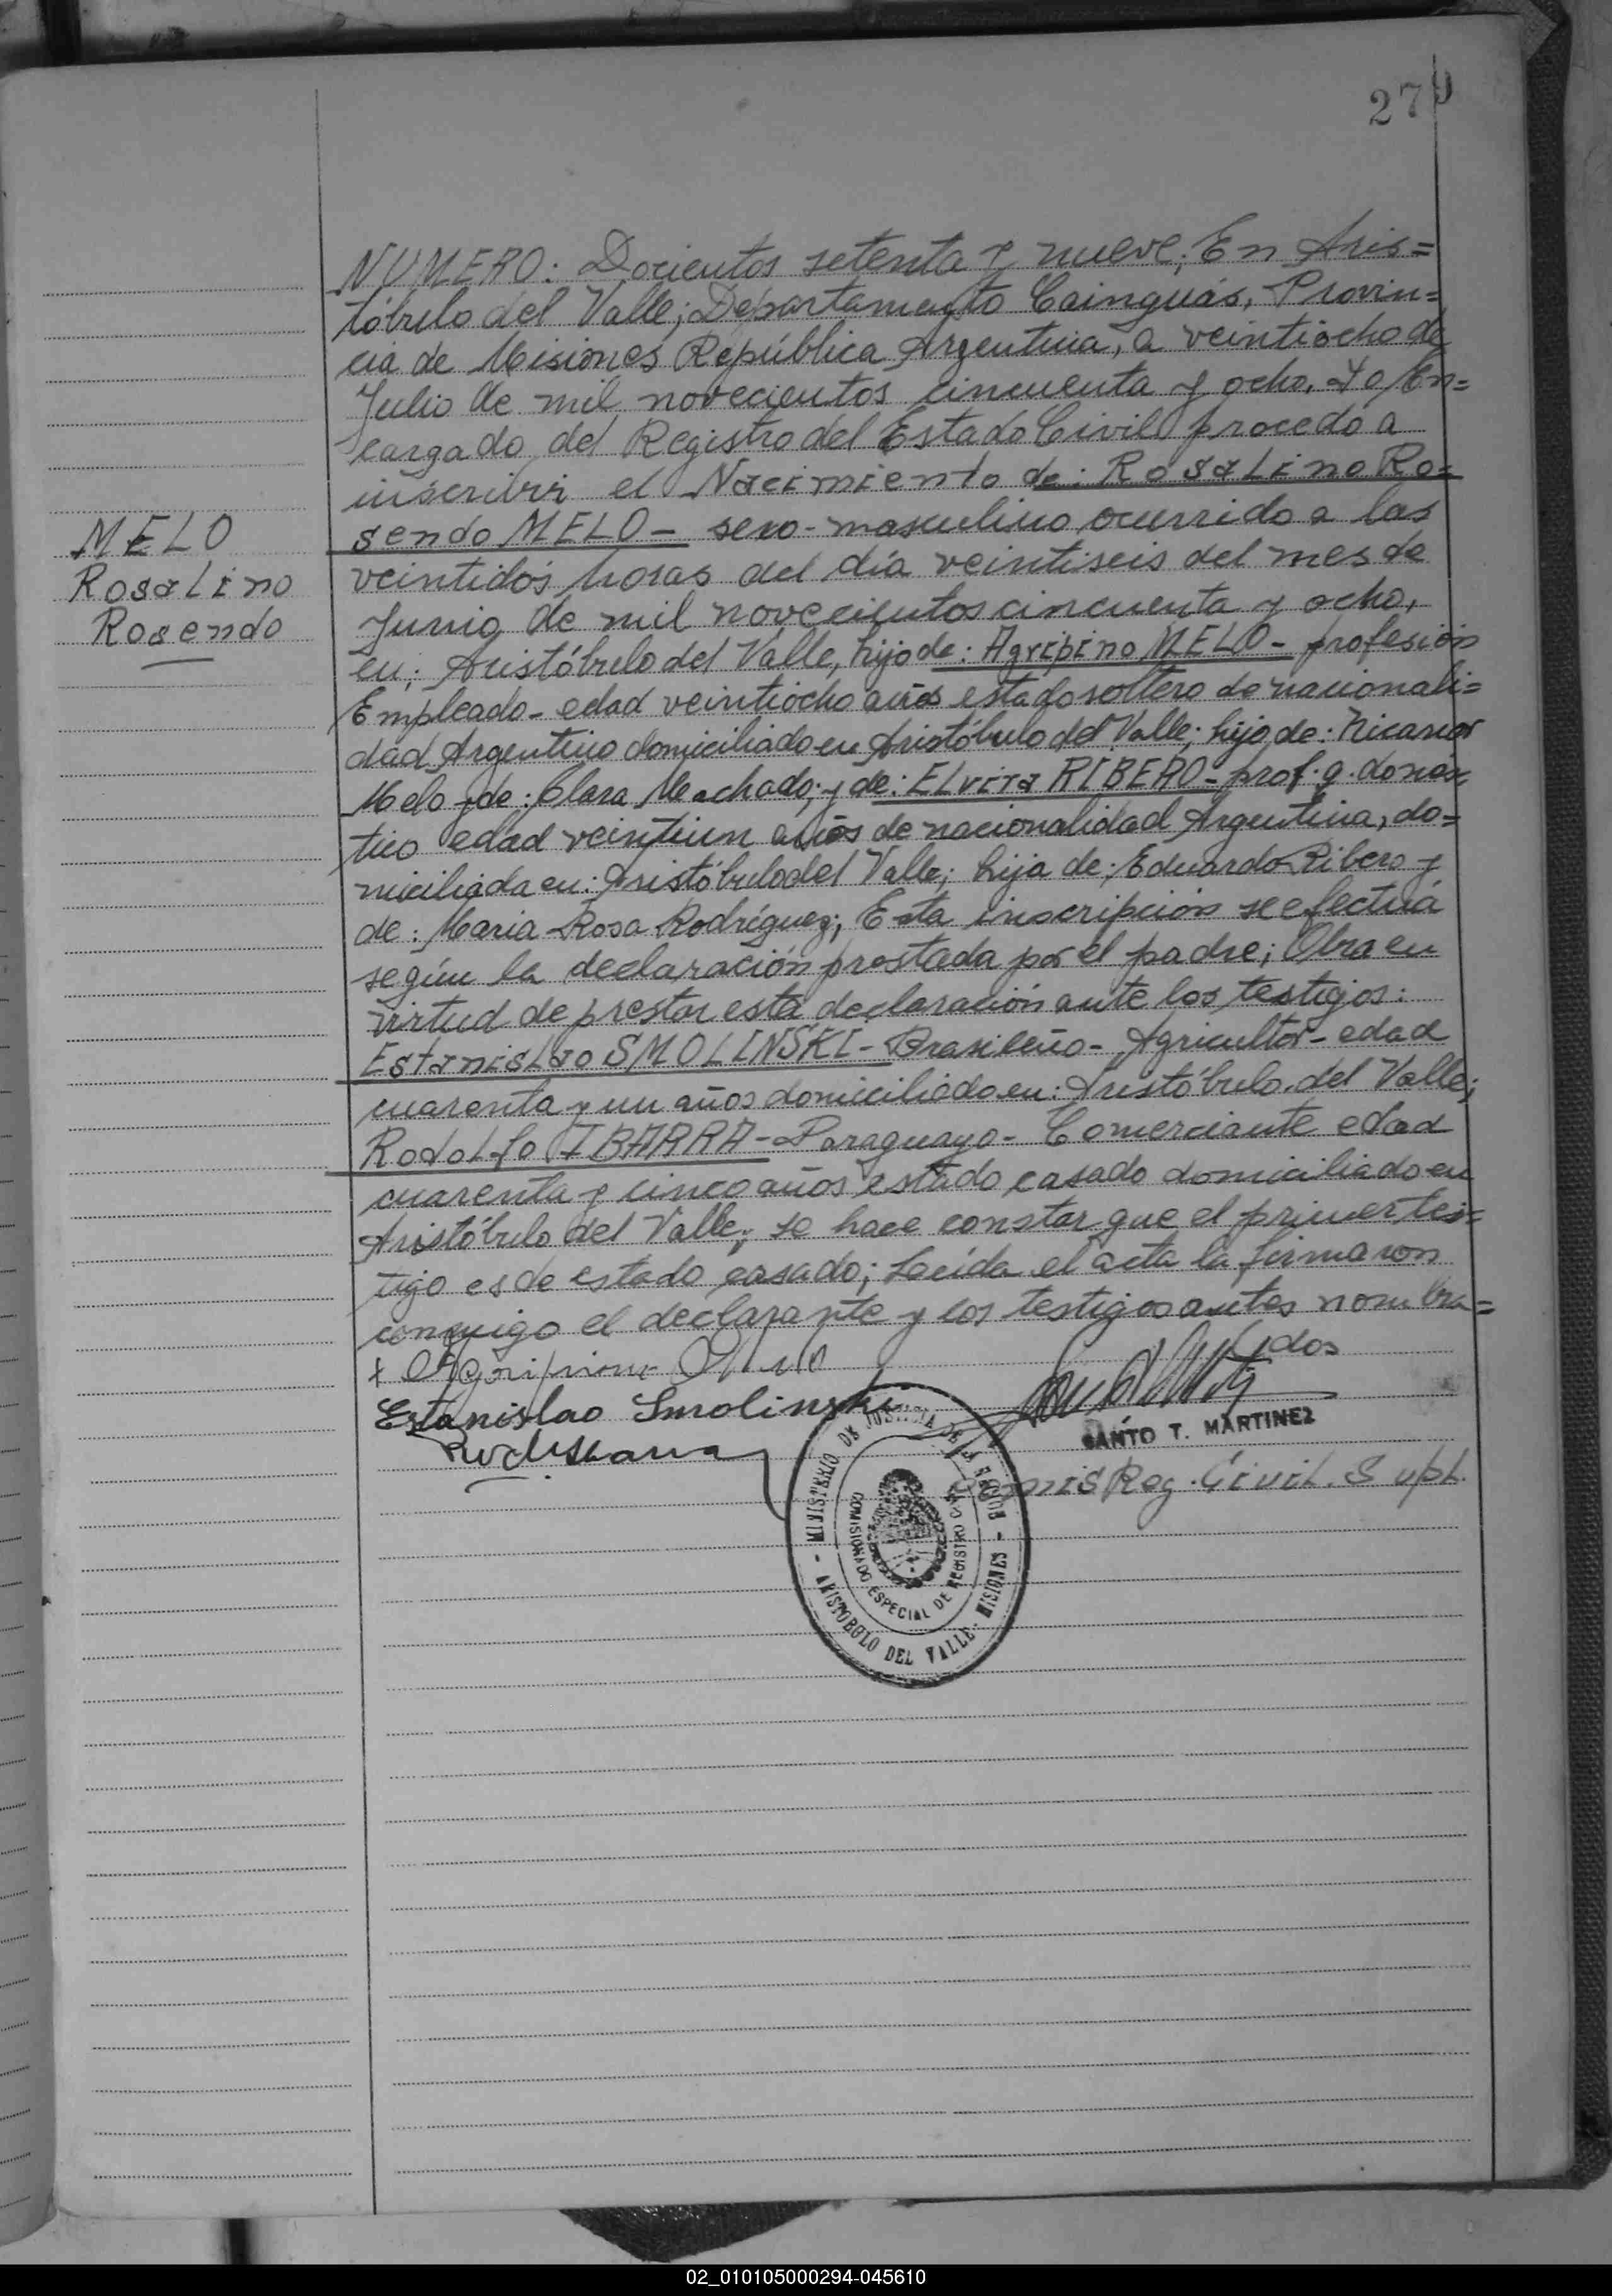 279
NUMERO: Docientos setenta y nueve; En Aris=
tóbulo del Valle; Departamento Cainguás, Provin=
cia de Misiones República Argentina, a veintiocho de
Julio de mil novecientos cincuenta y ocho. Yo, En=
cargado del Registro del Estado Civil procedo a
inscribir el Nacimiento de: Rosalino Ro=
sendo MELO- sexo-masculino ocurrido a las
MELO
Rosalino
Rosendo
veintidós horas del día veintiseis del mes de
Junio de mil novecientos cincuenta y ocho,
en; Aristóbulo del Valle, hijo de: Agripino MELO- profesión
Empleado- edad veintiocho años estado soltero de nacionali=
dad Argentino domiciliado en Aristóbulo del Valle; hijo de: Nicanor
Melo y de: Clara Machado; y de: ELvira RIBERO- prof. q. domes
tico edad veintiun años de nacionalidad Argentina, do=
miciliada en: Aristóbulo del Valle; hija de; Eduardo Ribero y
de: Maria Rosa Rodríguez; Esta inscripción se efectúa
según la declaración prestada por el padre; Obra en
virtud de prestar esta declaración ante los testigos:
Estanislao SMOLINSKI- Brasileño- Agricultor- edad
cuarenta y un años domiciliado en: Aristóbulo del Valle;
Rodolfo IBARRA- Paraguayo- Comerciante edad
cuarenta y cinco años estado casado domiciliado en
Aristóbulo del Valle; se hace constar que el primer tes=
tigo es de estado casado; Leída el acta la firmaron
conmigo el declarante y los testigos antes nombra=
dos
Estanislao Smolinski
SANTO T. MARTINEZ
Reg. Civil. Supl.
MINISTERIO DE JUSTICIA DE LA NACION - ARISTOBULO DEL VALLE - MISIONES -
COMISIONADO ESPECIAL DE REGISTRO CIVIL
02_010105000294-045610